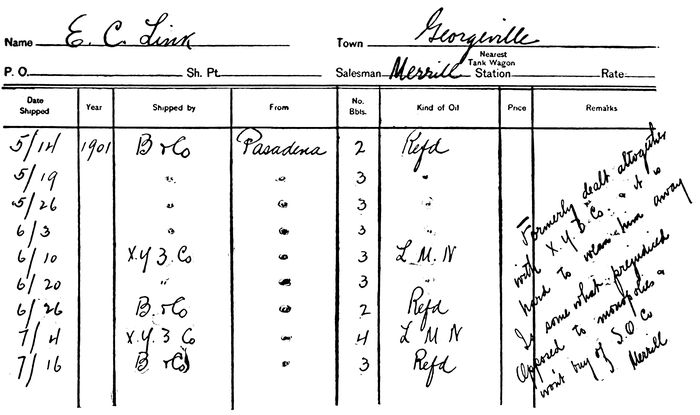 Name E. C. Link Town Georgeville
P. O. Sh. Pt. Salesman Merrill Nearest Tank Wagon Station Rate
Date Shipped Year Shipped by From No. Bbls. Kind of Oil Price Remarks
5/14 1901 B & Co Pasadena 2 Refd
5/19 " " 3 "
5/26 " " 3 "
6/3 " " 3 "
6/10 X.Y.Z. Co " 3 L. M. N
6/20 " " 3 "
6/26 B. & Co " 2 Refd
7/4 X.Y.Z Co " 4 L M N
7/16 B & Co " 3 Refd
Formerly dealt altogether
with X.Y.Z. Co. & it is
hard to wean him away
Is some what prejudiced
Opposed to monopolies &
won't buy of S.O Co
Merrill